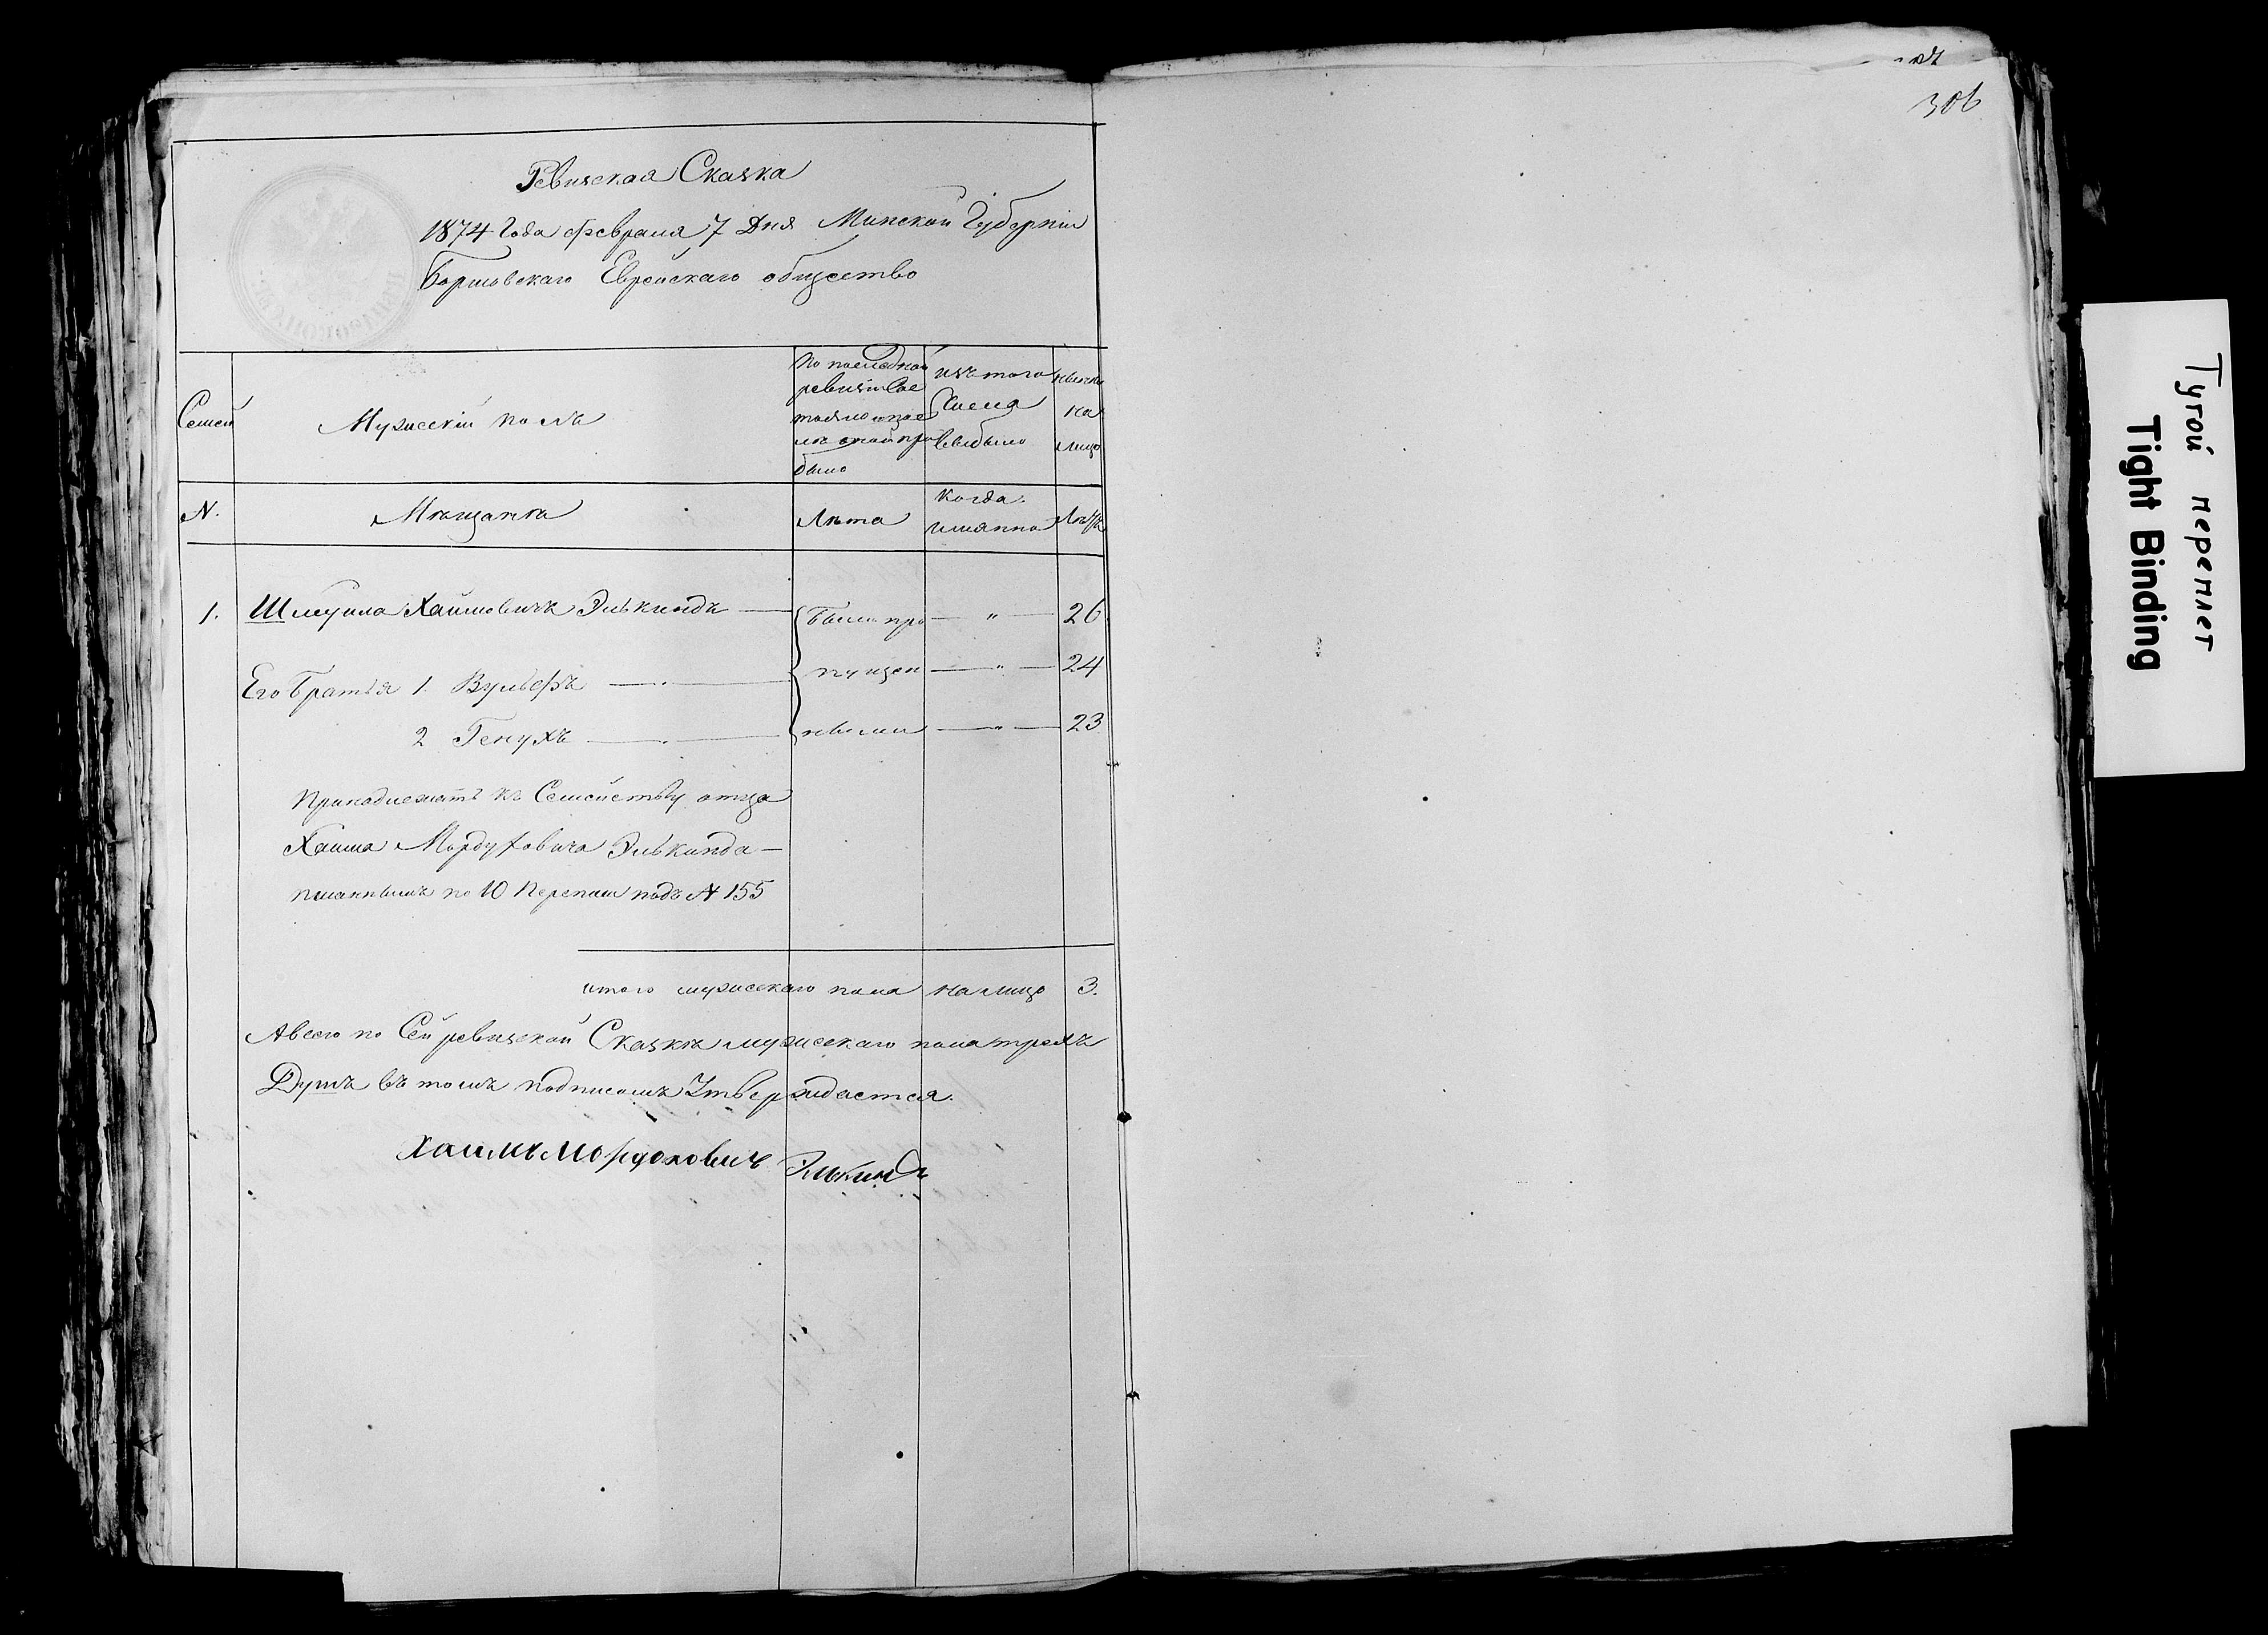 306
Ревизская Сказка
1874 Года февраля 7 Дня Минской Губернiи
Борисовскаго Еврейскаго общество
Семей
Мужескiй полъ
По последней ревизiи
изъ того Числа выбыло
ныне на лицо
N.
Мѣщанѣ
Лѣта
когда имянно
Лѣтъ
1. Шмуила Хаимовичъ Элькиндъ — Были про — " — 26
Его Братья 1. Вульфъ — пущен — " — 24
2 Генухъ — ными — " — 23
Принадлежатъ къ Семейству отца
Хаима Мордуховича Элькинда —
писаннымъ по 10 Переписи подъ № 155
итого мужескаго пола на лицо 3.
Авсего по Сей ревизской Сказкѣ мужескаго пола трехъ
Душъ въ томъ подписомъ Утверждается.
Хаимъ Мордоховичъ Элькиндъ
Тугой переплет
Tight Binding